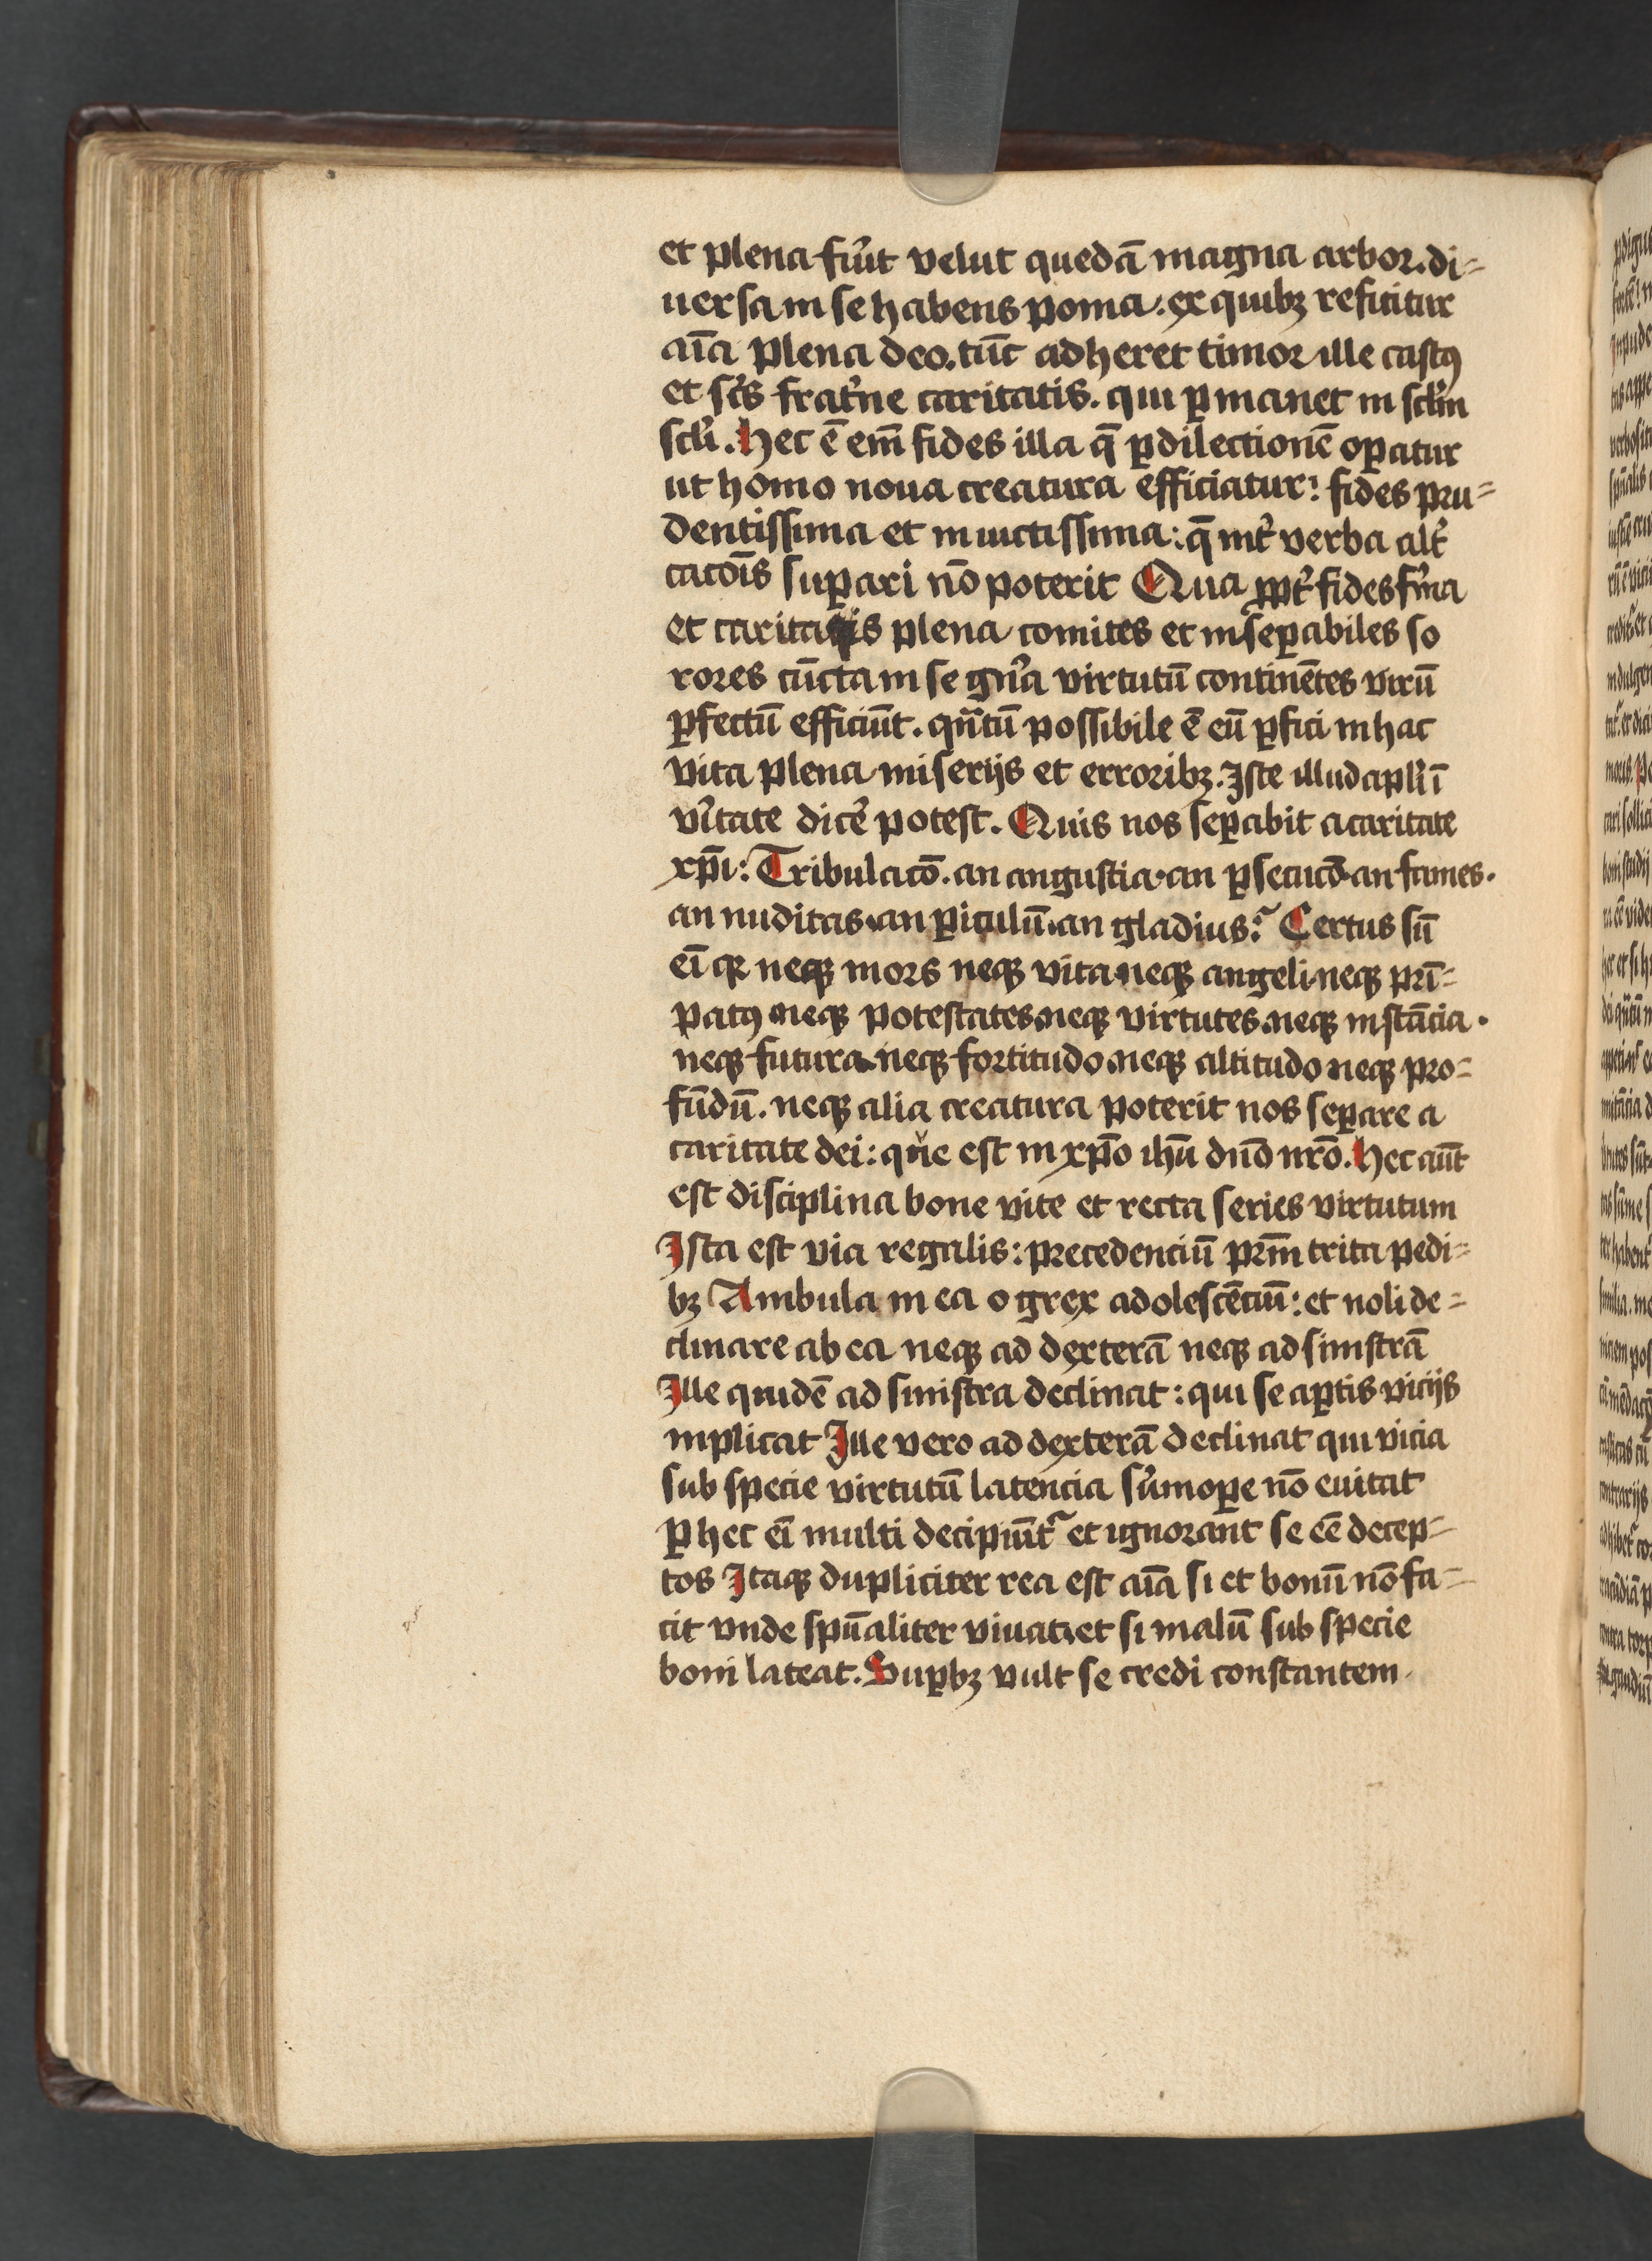 et plena fiũt velut quedã magna arbor. di=
uersa in se habens poma. ex quibꝫ reficitur
aĩa plena deo. tũc adheret timor ille castꝯ
et scũs frat̃ne caritatis. qui ꝑmanet in scl̃m
scl̃i. Hec ẽ em̃ fides illa q̃ ꝑ dilectionẽ oꝑatur
ut homo noua creatura efficiatur: fides pru=
dentissima et inuictissima: q̃ int̃ verba alt̃
cacõis suꝑari nõ poterit Qua ꝓpt̃ fides f̃ma
et caritatis plena comites et inseꝑabiles so
rores cũcta in se gña virtutũ continẽtes virũ
ꝑfectũ efficiũt. qñtũ possibile ẽ eũ ꝑfici in hac
vita plena miserijs et erroribꝫ. Iste illud apl̃i ĩ
ṽitate dic̃e potest. Quis nos seꝑabit a caritate
xp̃i: Tribulacõ. an angustia. an ꝑsecucõ. an fames.
an nuditas. an ꝑiculũ. an gladius: Certus sũ
eĩ qꝛ neqꝫ mors neqꝫ vita neqꝫ angeli. neqꝫ prĩ=
patꝯ neqꝫ potestates. neqꝫ virtutes. neqꝫ instãcia.
neqꝫ futura. neqꝫ fortitudo. neqꝫ altitudo neqꝫ pro=
fũdũ. neqꝫ alia creatura poterit nos seꝑare a
caritate dei: que est in xp̃o ihũ dño nrõ. Hec aũt
est disciplina bone vite et recta series virtutum
Ista est via regalis: precedenciũ prm̃ trita pedi=
bꝫ Ambula in ea o grex adolescẽciũ: et noli de=
clinare ab ea neqꝫ ad dexterã neqꝫ ad sinistrã
Ille quidẽ ad sinistra declinat: qui se aꝑtis vicijs
inplicat Ille vero ad dexterã declinat qui vicia
sub specie virtutũ latencia sũmoꝑe nõ euitat
ꝑ hec eĩ multi decipiũt̃ et ignorant se eẽ decep=
tos Itaqꝫ dupliciter rea est aĩa si et bonũ nõ fa=
cit vnde spũaliter viuat. et si malũ sub specie
boni lateat. Suꝑbꝫ vult se credi constantem.